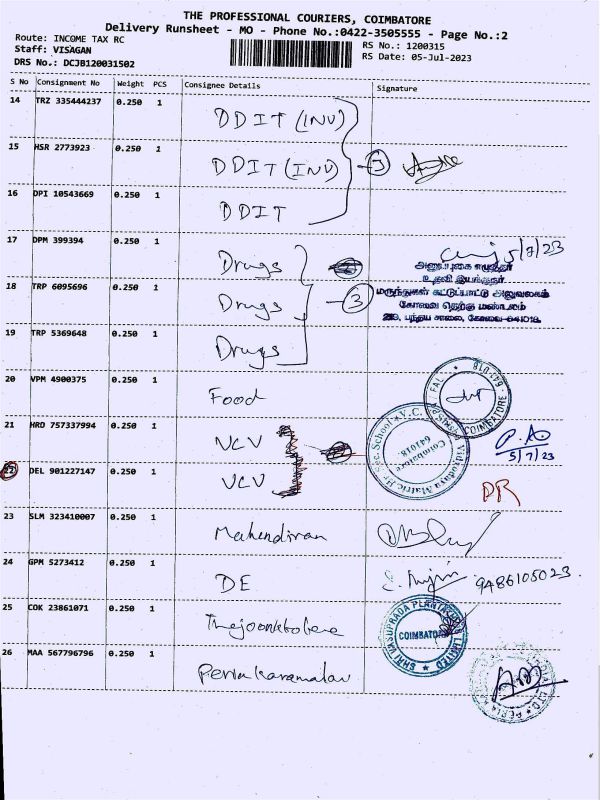 THE PROFESSIONAL COURIERS, COIMBATORE
Delivery Runsheet - MO - Phone No.:0422-3505555 - Page No.:2
Route: INCOME TAX RC
RS No.: 1200315
Staff: VISAGAN
RS Date: 05-Jul-2023
DRS No.: DCJB120031502
S No Consignment No Weight PCS Consignee Details Signature
14 TRZ 335444237 0.250 1 DDIT (INV)
15 HSR 2773923 0.250 1 DDIT (INV) 3
16 DPI 10543669 0.250 1 DDIT
17 DPM 399394 0.250 1 Drugs 5/7/23
அனுப்புகை எழுத்தர்
உதவி இயக்குநர்
18 TRP 6095696 0.250 1 Drugs 3 மருந்துகள் கட்டுப்பாட்டு அலுவலகம்
கோவை தெற்கு மண்டலம்
பந்தய சாலை, கோவை-641018.
19 TRP 5369648 0.250 1 Drugs
20 VPM 4900375 0.250 1 Food COIMBATORE 641018
21 HRD 757337994 0.250 1 VCV Vidyodaya Matric Hr Sec School Coimbatore 641018. P. AO
5/7/23
22 DEL 901227147 0.250 1 VCV DR
23 SLM 323410007 0.250 1 Mahendiran
24 GPM 5273412 0.250 1 DE 9486105023
25 COK 23861071 0.250 1 SHRI VASUPRADA PLANTATIONS LIMITED COIMBATORE
26 MAA 567796796 0.250 1 Periakaramalai